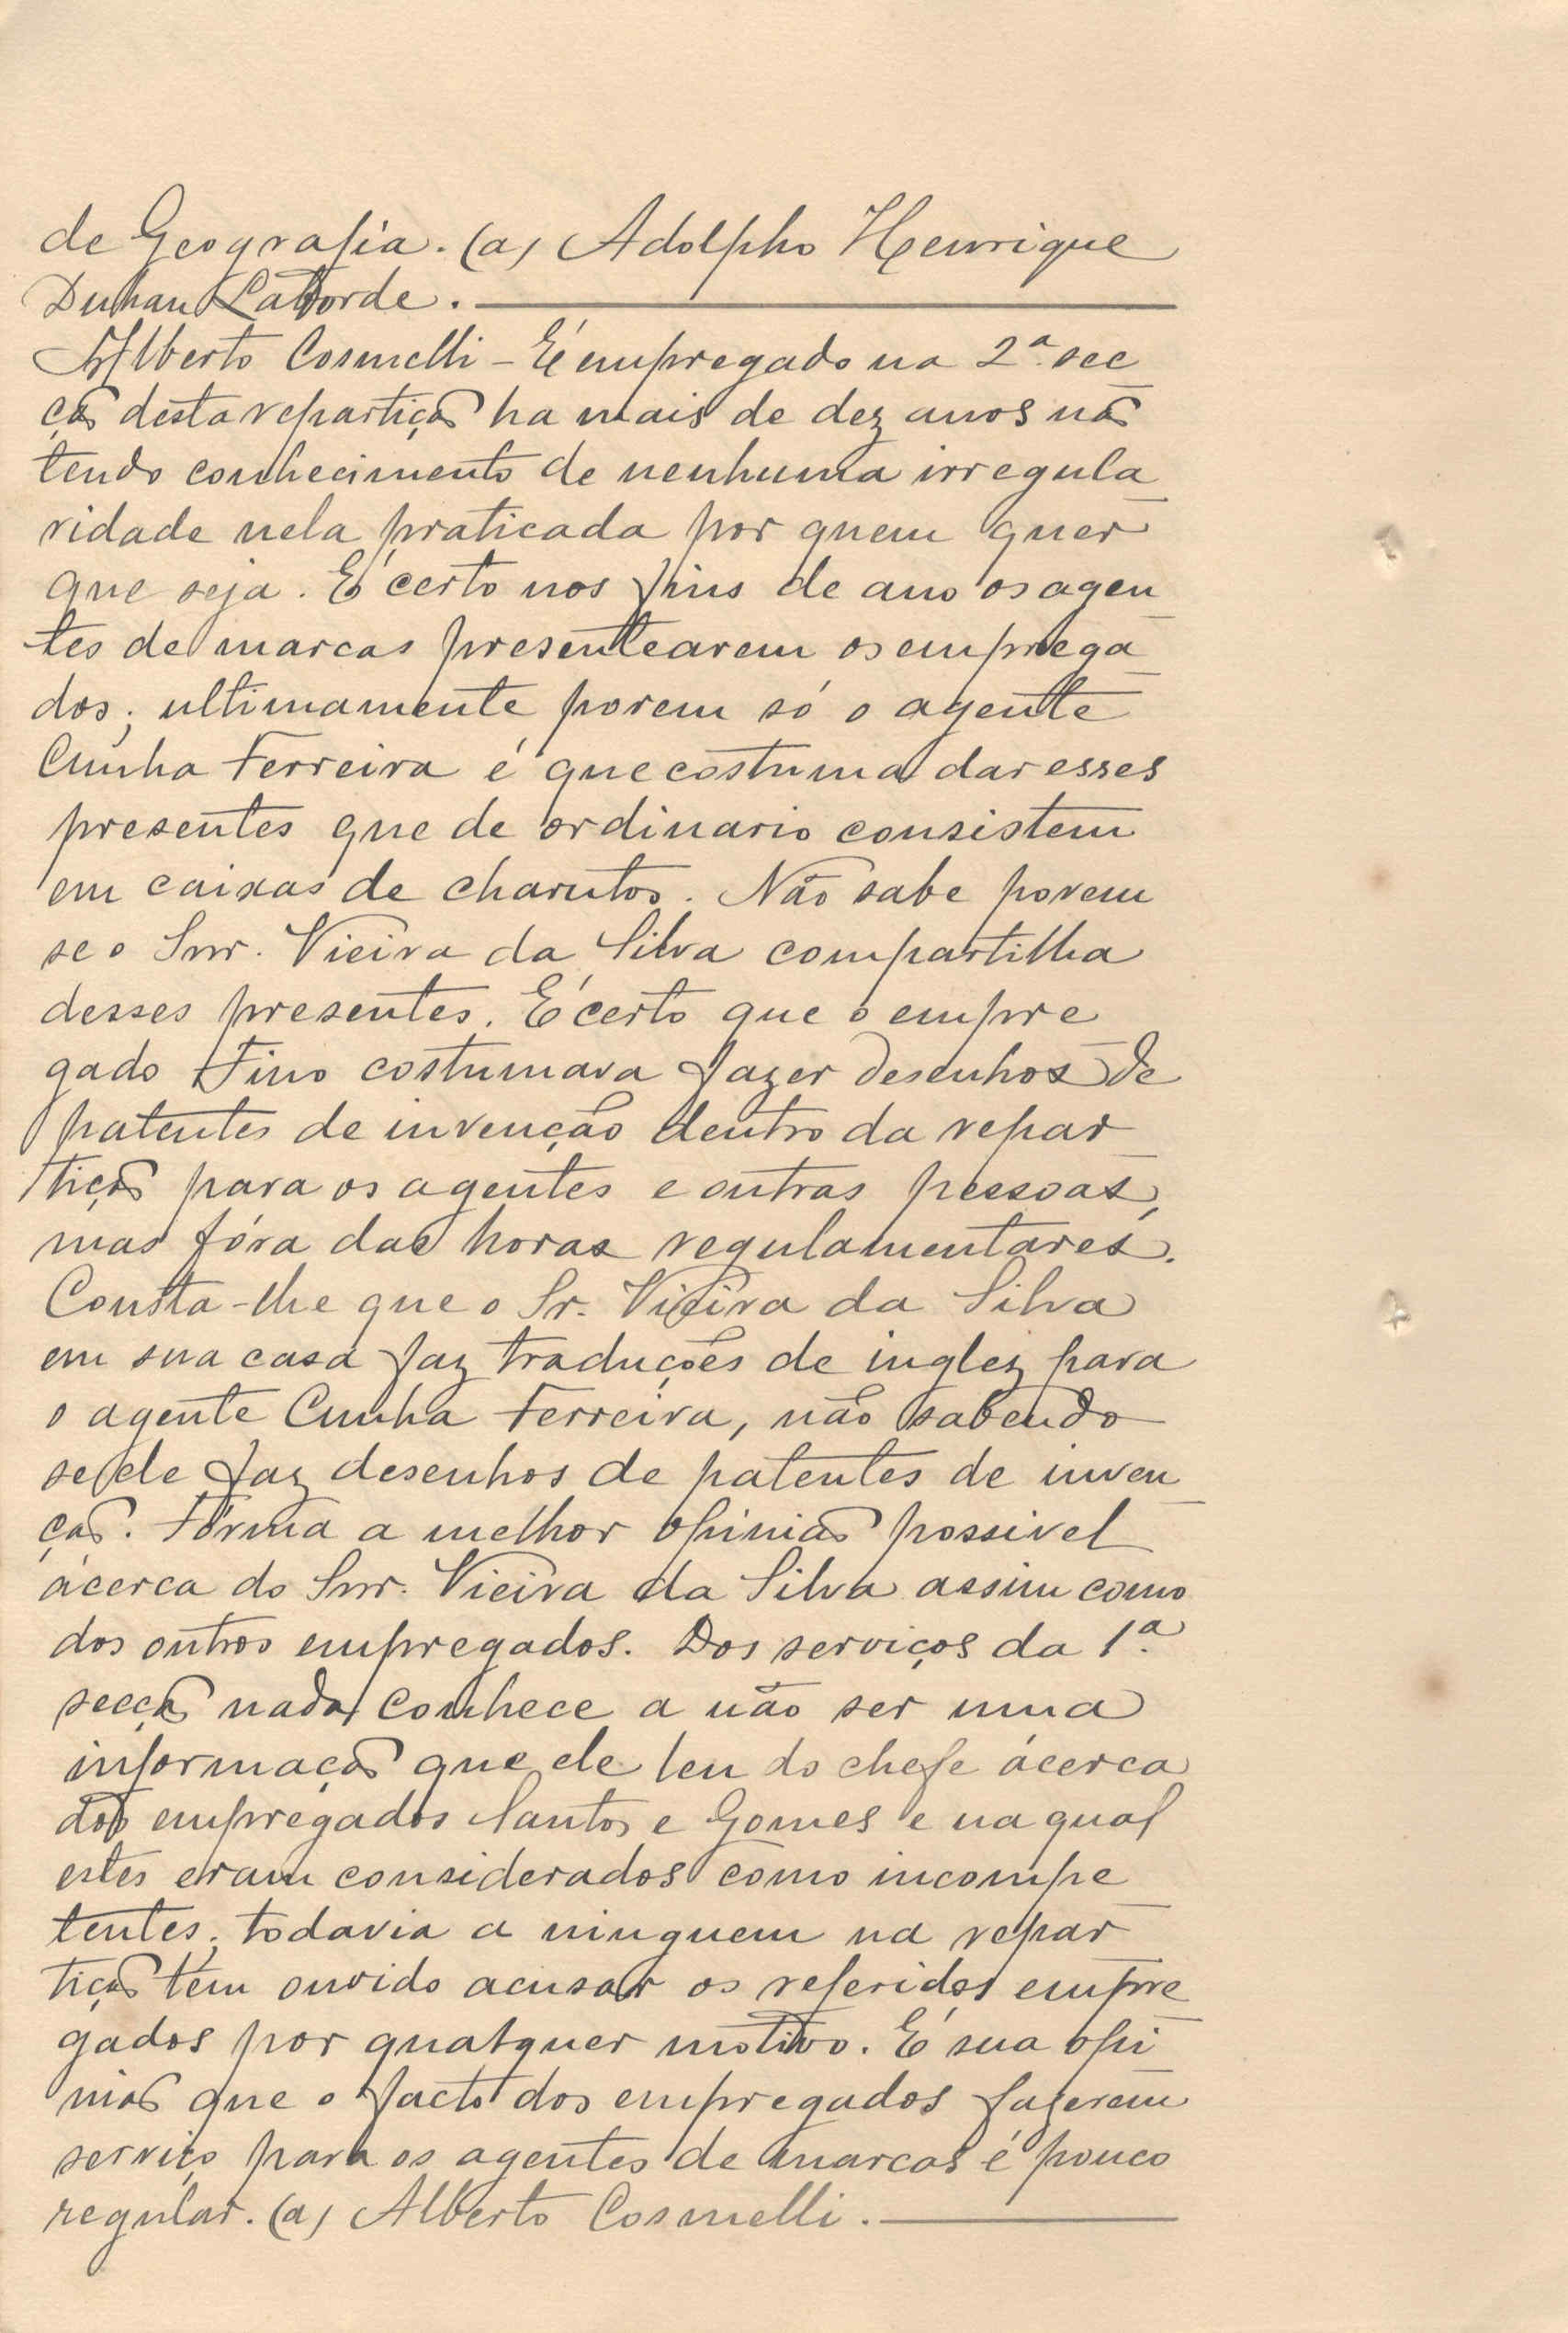 de Geografia. (a) Adolpho Henrique
Duhan Laborde.
Alberto Cosmelli - É empregado na 2ª. sec
ção desta repartição ha mais de dez anos não
tendo conhecimento de nenhuma irregula
ridade nela praticada por quem quer
que seja. É certo nos fins de ano os agen
tes de marcas presentearem os emprega
dos; ultimamente porem só o agente
Cunha Ferreira é que costuma dar esses
presentes que de ordinario consistem
em caixas de charutos. Não sabe porem
se o Snr. Vieira da Silva compartilha
desses presentes. É certo que o empre
gado Tino costumava fazer desenhos de
patentes de invenção dentro da repar
tição para os agentes e outras pessoas,
mas fóra das horas regulamentares.
Consta-lhe que o Sr. Vieira da Silva
em sua casa faz traduções de inglez para
o agente Cunha Ferreira, não sabendo
se ele faz desenhos de patentes de inven
ção. Fórma a melhor opinião possivel
ácerca do Snr. Vieira da Silva assim como
dos outros empregados. Dos serviços da 1ª.
secção nada conhece a não ser uma
informação que ele leu do chefe ácerca
dos empregados Santos e Gomes e na qual
estes eram considerados como incompe
tentes; todavia a ninguem na repar
tição tem ouvido acusar os referidos empre
gados por qualquer motivo. É sua opi
nião que o facto dos empregados fazerem
serviço para os agentes de marcas é pouco
regular. (a) Alberto Cosmelli.